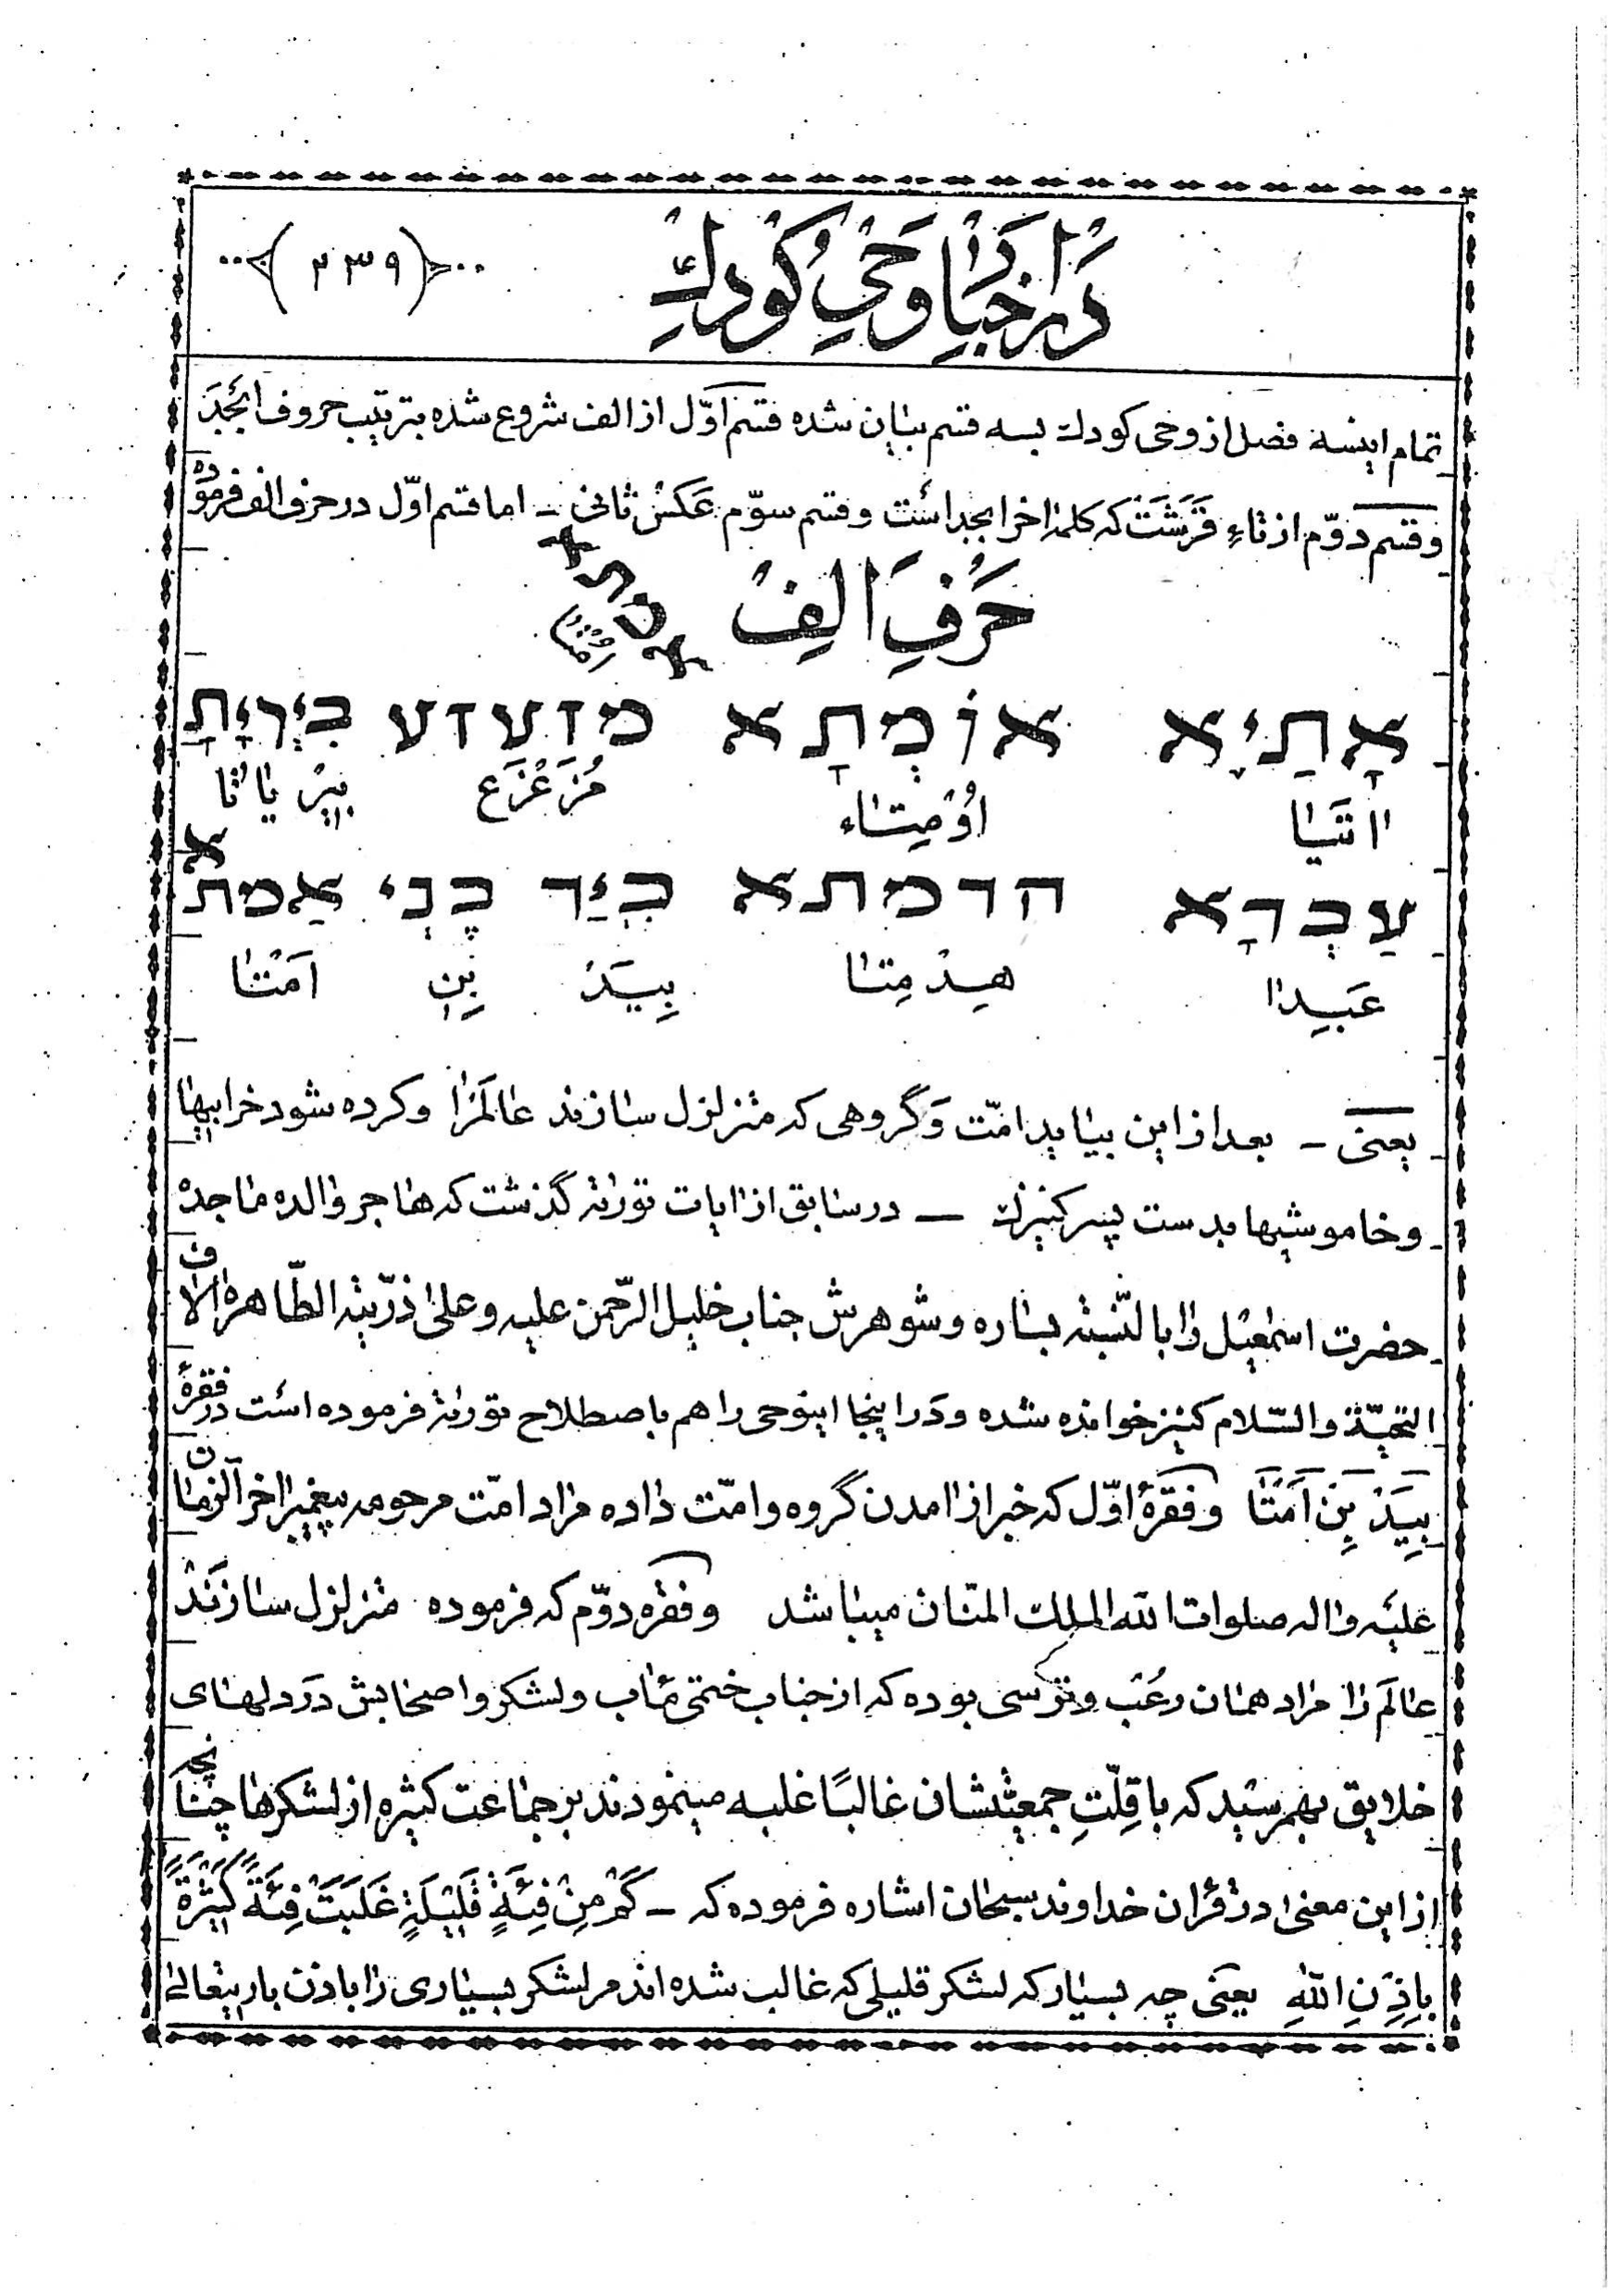 در اخبار وحی کودک
﴿ ٢٣٩ ﴾
تمام اینسه فصل از وحی کودک بسه قسم بیان شده قسم اوّل از الف شروع شده بترتیب حروف ابجد
و قسم دوّم از تاءِ قَرَشَتْ که کلمهٔ اخر ابجد است و قسم سوّم عکس ثانی – اما قسم اوّل در حرف الف فرموده
حَرْفِ اَلِفْ
אָתַיָא אוֹמְתָא מזעזע בִּיְרִיָתָא
ااتَیا اُوْمِتاء مُزَعْزَع بیِرْیاتا
עַבְדָא הדמתא בְּיַד בְּנְי אַמתא
عَبیدا هیدْمِتا بِیَدْ بِنِ اَمْتا
یعنی – بعد از این بیاید امّت وَگروهی که متزلزل سازند عالَمرا و کرده شود خرابیها
و خاموشیها بدست پسر کنیزک – در سابق از ایات توریٰة گذشت که هاجر والده ماجده
حضرت اسمعیل را بالنّسبه بساره و شوهرش جناب خلیل الرّحمن علیه و علیٰ ذرّیته الطّاهرة الاف
التحیّة والسّلام کنیز خوانده شده و دَر اینجا اینوحی را هم باصطلاح توریٰة فرموده است در فقرهٔ
بِیَدْ بِنِ اَمْتا و فقرهٔ اوّل که خبر از امدن گروه و امّت داده مراد امّت مرحومه پیغمبر اخر الزمان
علیه واله صلوات الله الملک المنّان میباشد و فقره دوّم که فرموده متزلزل سازَنْد
عالَم را مراد همان رعُب و ترسی بوده که از جناب ختمی ماب و لشکر و اصحابش دَر دلهای
خلایق بهمرسید که با قِلّتِ جمعیّتشان غالبًا غلبه مینمودند بر جماعت کثیره از لشکرها چنانچه
از این معنی در قران خداوند سبحان اشاره فرموده که – كَمْ مِنْ فِئَةٍ قَلِیْلَةٍ غَلَبَتْ فِئَةً كَثِیْرَةً
بِاِذْنِ اللهِ یعنی چه بسیار که لشکر قلیلی که غالب شده اند مر لشکر بسیاری را باذن باریتعالیٰ